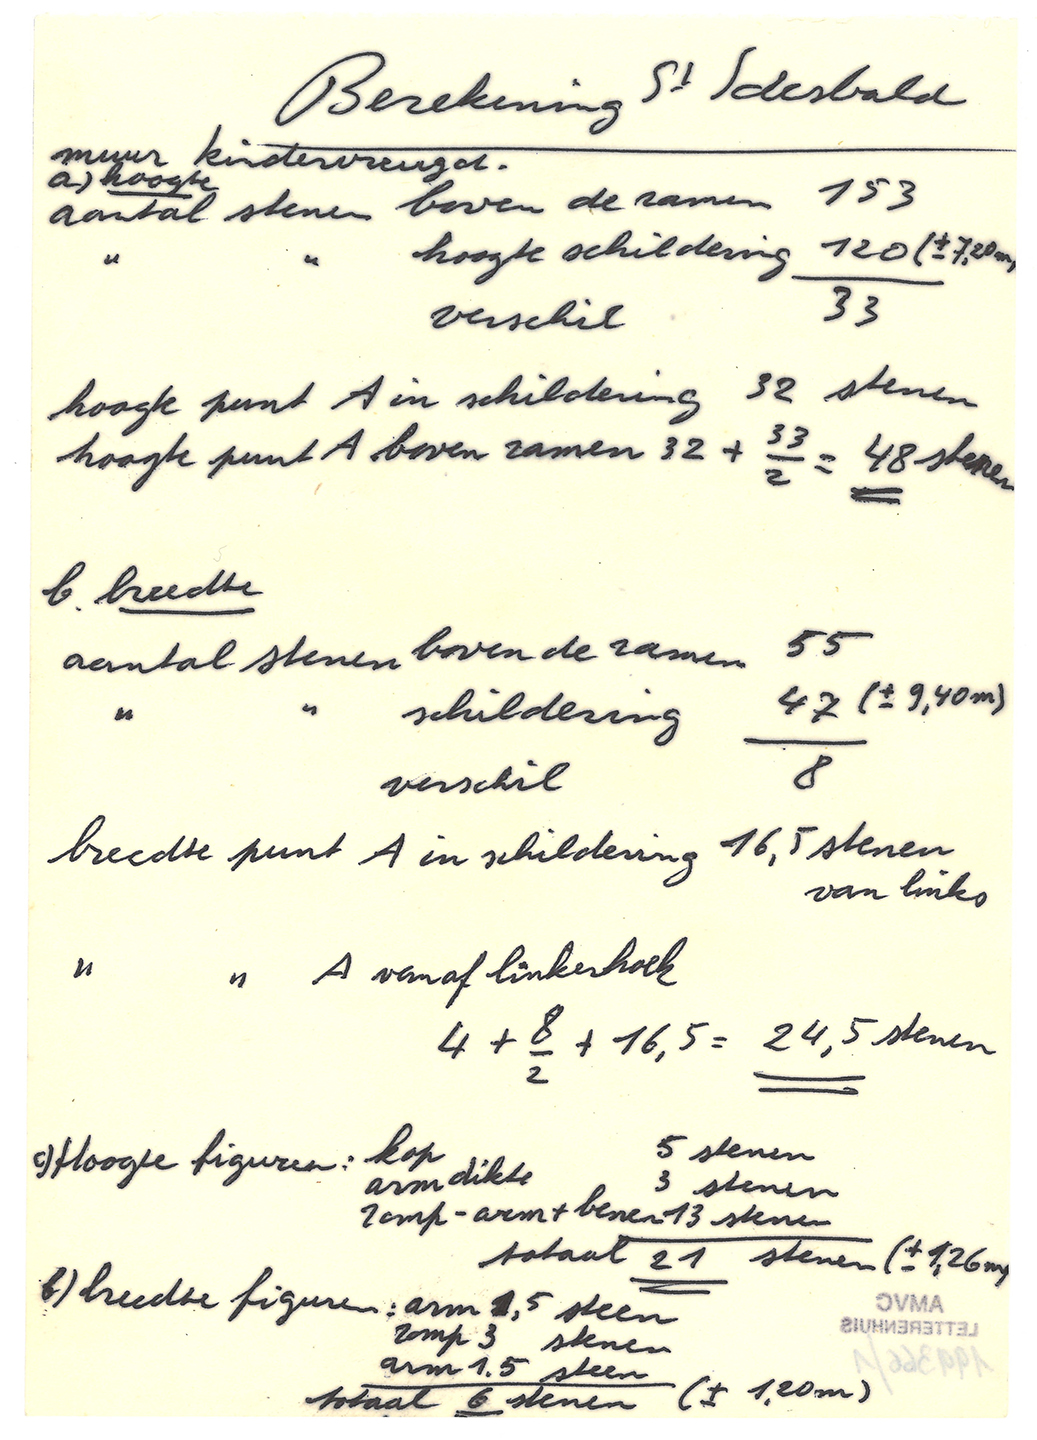 Berekening St Idesbald
muur kindervreugd.
a) hoogte
aantal stenen boven de ramen 153
" " hoogte schildering 120 (± 7,20 m)
verschil 33
hoogte punt A in schildering 32 stenen
hoogte punt A boven ramen 32 + 33/2 = 48 stenen
b. breedte
aantal stenen boven de ramen 55
" " schildering 47 (± 9,40 m)
verschil 8
breedte punt A in schildering 16,5 stenen
van links
" " A vanaf linkerhoek
4 + 8/2 + 16,5 = 24,5 stenen
c) Hoogte figuren: kop 5 stenen
arm dikte 3 stenen
romp - arm + benen 13 stenen
totaal 21 stenen (± 1,26 m)
b) breedte figuren: arm 1,5 steen
romp 3 stenen
arm 1.5 steen
totaal 6 stenen (± 1,20 m)
AMVC
LETTERENHUIS
199366/1